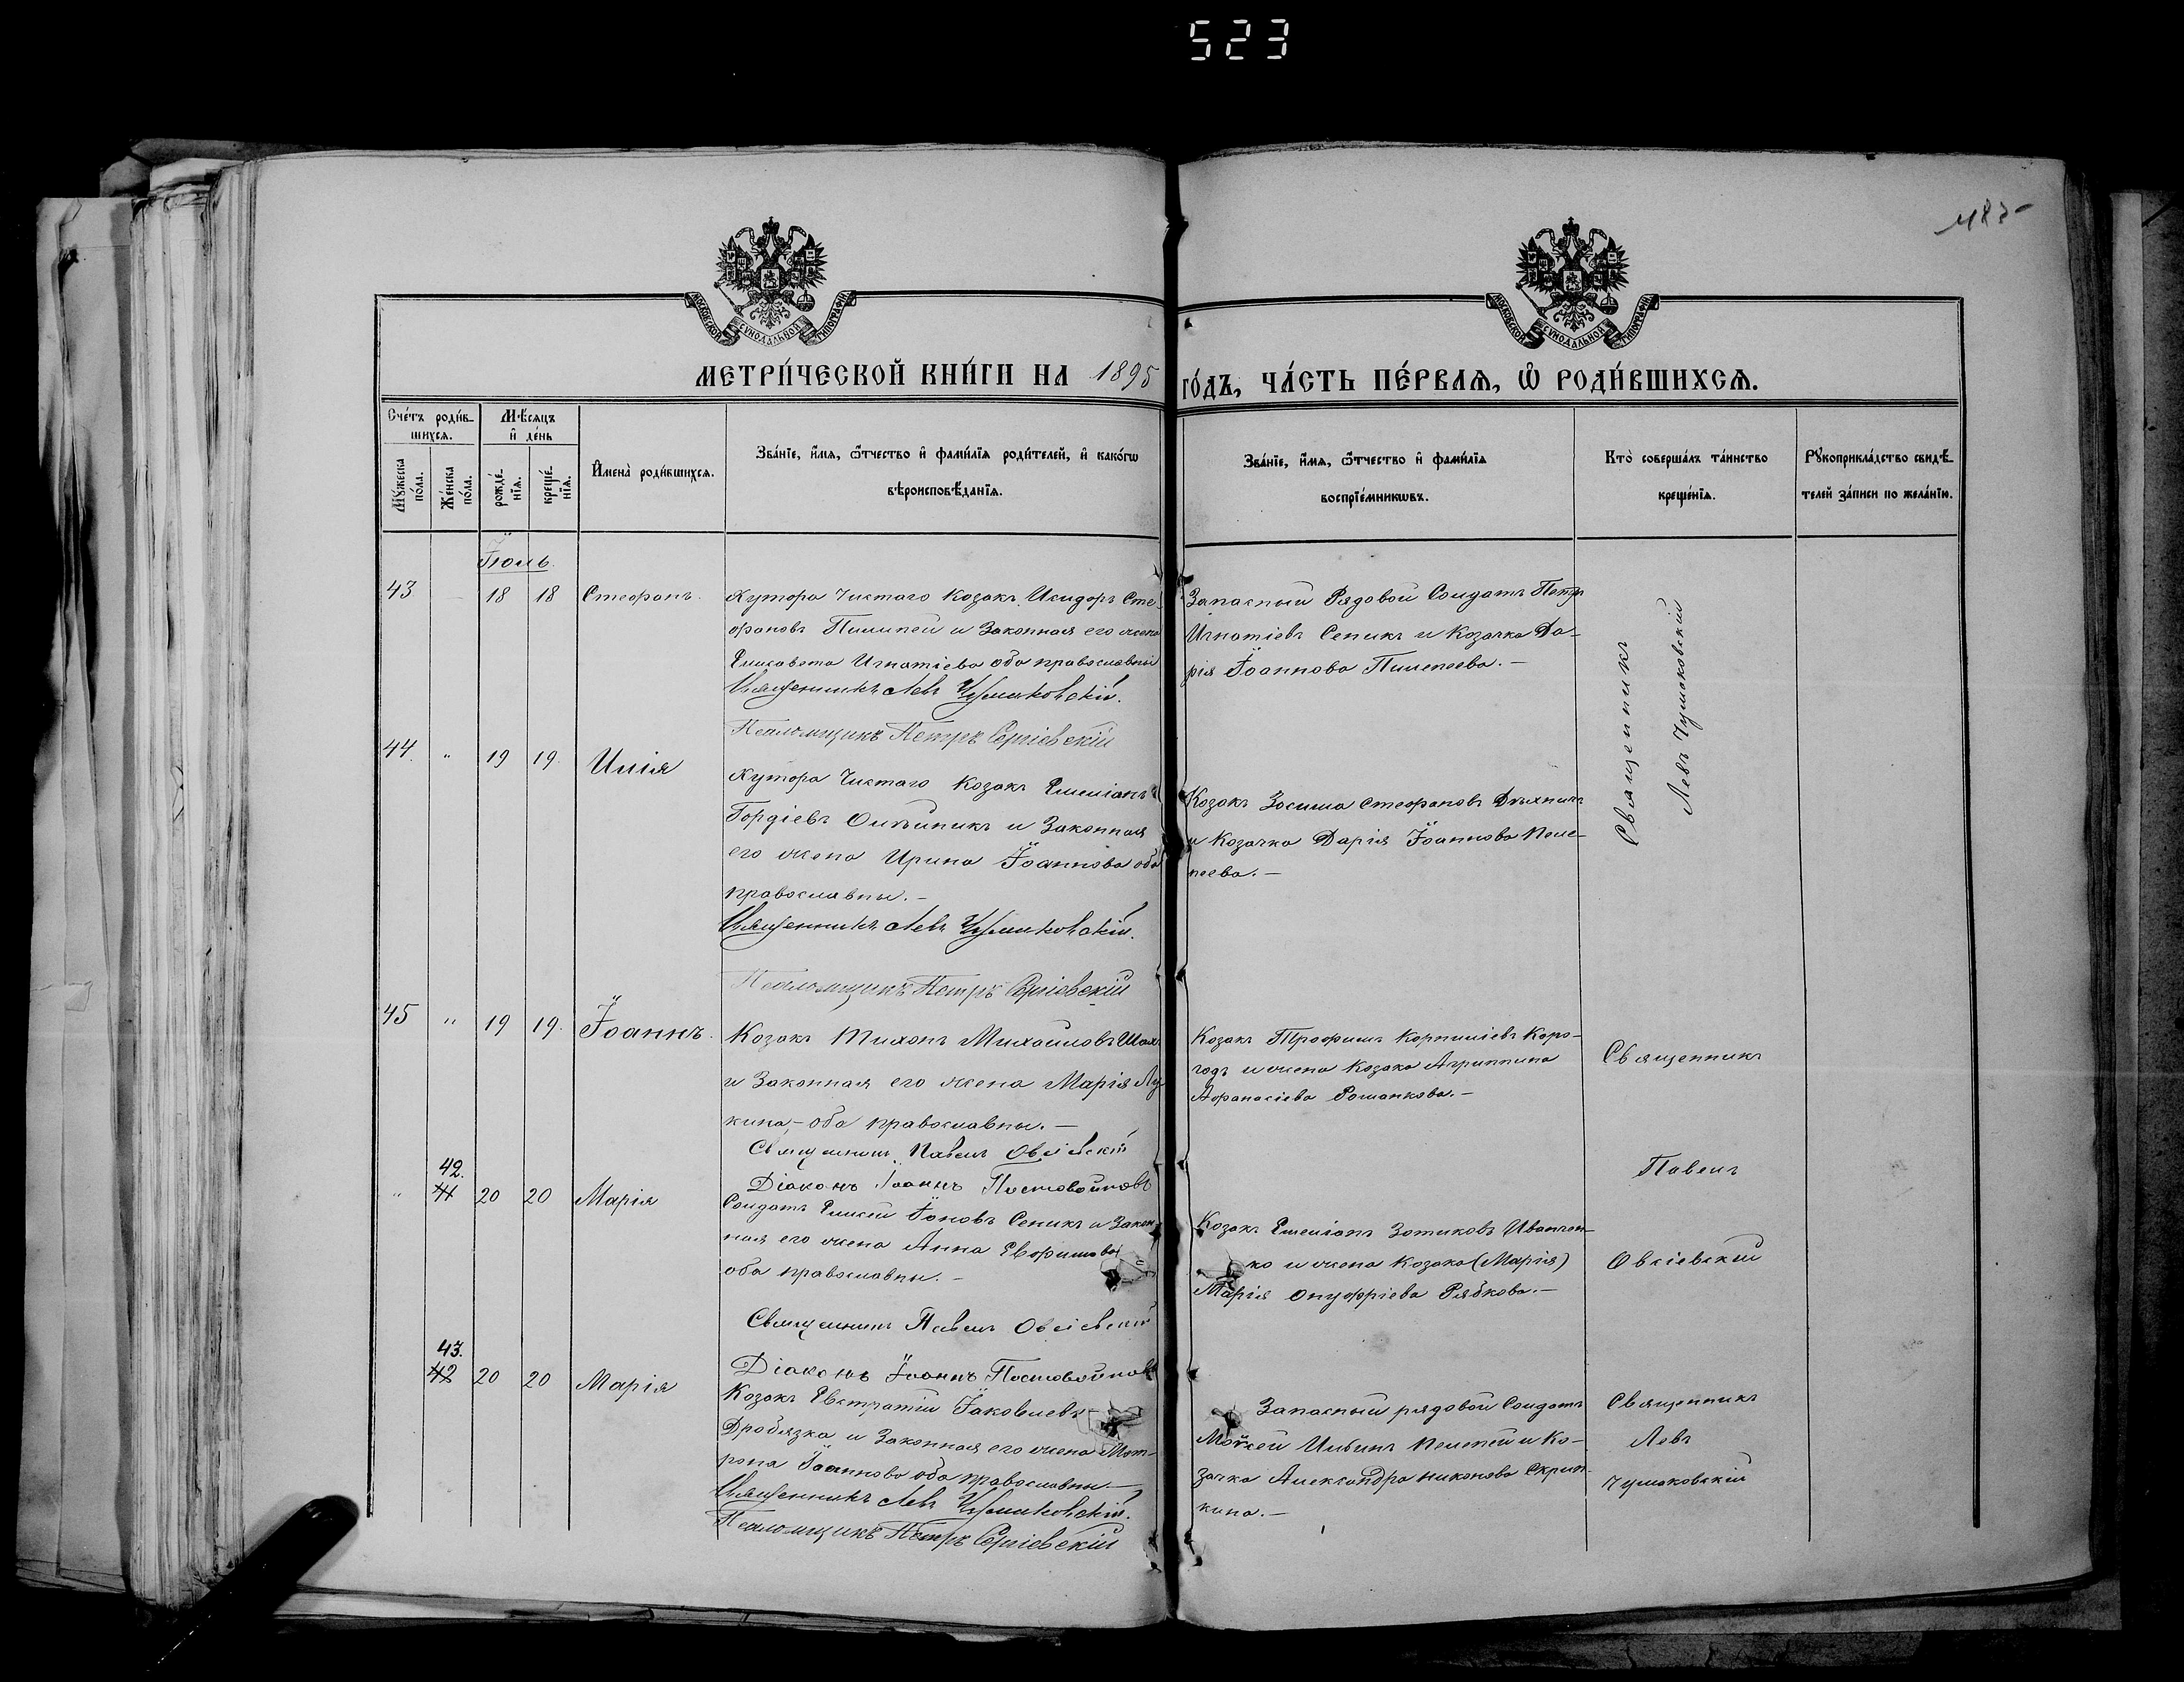 523
483
МОСКОВСКОЙ СУНОДАЛЬНОЙ ТИПОГРАФІИ
МОСКОВСКОЙ СУНОДАЛЬНОЙ ТИПОГРАФІИ
МЕТРИ́ЧЕСКОЙ КНИ́ГИ НА 1895 ГО́ДЪ, ЧА́СТЬ ПЕ́РВАѦ, Ѡ РОДИ́ВШИХСѦ.
Сче́тъ роди́в-
шихсѧ.
Мѣ́сѧцъ
и҆ де́нь
Мꙋ́жеска
по́ла.
Же́нска
по́ла.
рожде́-
нїѧ.
креще́-
нїѧ.
И҆мена̀ роди́вшихсѧ.
Зва́нїе, и҆́мѧ, ѻ҆́тчество и҆ фами́лїѧ роди́телей, и҆ како́гѡ
вѣроисповѣ́данїѧ.
Зва́нїе, и҆́мѧ, ѻ҆́тчество и҆ фами́лїѧ
воспрїе́мникѡвъ.
Кто̀ соверша́лъ та́инство
креще́нїѧ.
Рꙋкоприкла́дство свидѣ́-
телей за́писи по жела́нїю.
Іюль.
43 18 18 Стефанъ.
Хутора Чистаго Козакъ Исидоръ Сте-
фановъ Пилипей и Законная его жена
Елисавета Игнатіева оба православны
Священникъ Левъ Чумаковскій.
Псаломщикъ Петръ Сергіевскій
Запасный Рядовой Солдатъ Петръ
Игнатіевъ Сепикъ и Козачка Да-
рія Іоаннова Пилипеева.—
Священникъ
Левъ Чумаковскій
44. " 19 19. Илія
Хутора Чистаго Козакъ Емеліанъ
Гордіевъ Олѣйникъ и Законная
его жена Ирина Іоаннова оба
православны.—
Священникъ Левъ Чумаковскій.
Псаломщикъ Петръ Сергіевскій
Козакъ Зосима Стефановъ
и Козачка Дарія Іоаннова Пеле-
пеева.—
45 " 19 19. Іоаннъ.
Козакъ Тихонъ Михайловъ Шах
и Законная его жена Марія Лу
кина,—оба православны.—
Священникъ Павелъ Овсіевскій
Діаконъ Іоаннъ Постовойтовъ
Козакъ Трофимъ Корниліевъ Коро-
годъ и жена Козака Агриппина
Афанасіева Романкова.—
Священникъ
Павелъ
Овсіевскій
42.
" 41 20 20 Марія
Солдатъ Елисей Іоновъ Сепикъ и Закон
ная его жена Анна Ефимова
оба православны.—
Священникъ Павелъ Овсіевскій
Діаконъ Іоаннъ Постовойтовъ
Козакъ Емеліанъ Зотиковъ Иванчен-
ко и жена Козака (Марія)
Марія Онуфріева Рябкова.—
43.
42 20 20 Марія
Козакъ Евстратій Іаковлевъ
Дробязка и Законная его жена Мат-
рона Іоаннова оба православны.—
Священникъ Левъ Чумаковскій.
Псаломщикъ Петръ Сергіевскій
Запасный рядовой Солдатъ
Мойсей Ильинъ Пелепей и Ко-
зачка Александра Никонова Скрип-
кина.—
Священникъ
Левъ
Чумаковскій